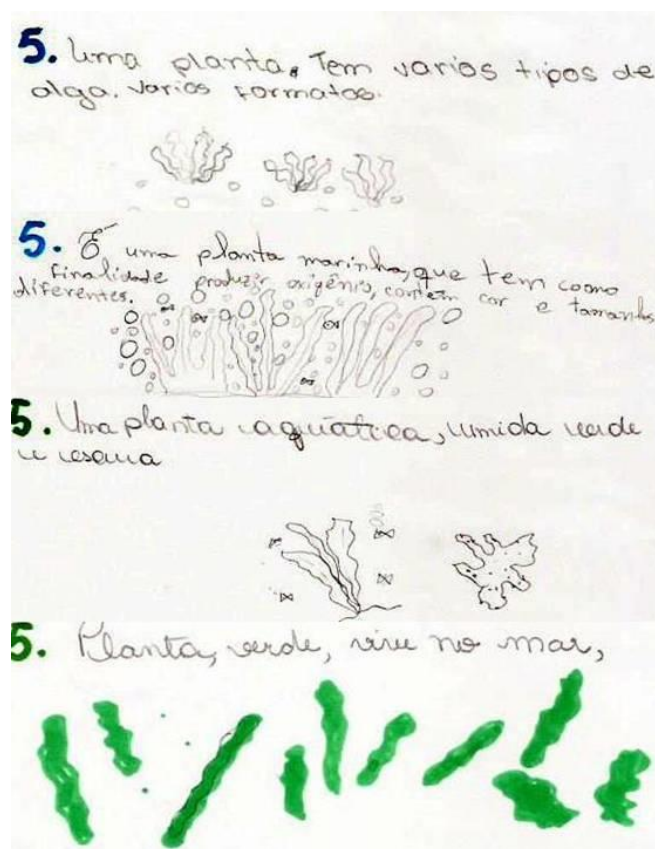 5. Uma planta. Tem varios tipos de
alga. varios formatos.
5. É uma planta marinha, que tem como
finalidade produzir oxigênio, contem cor e tamanhos
diferentes.
5. Uma planta aquática, umida verde
e escura
5. Planta, verde, vive no mar,